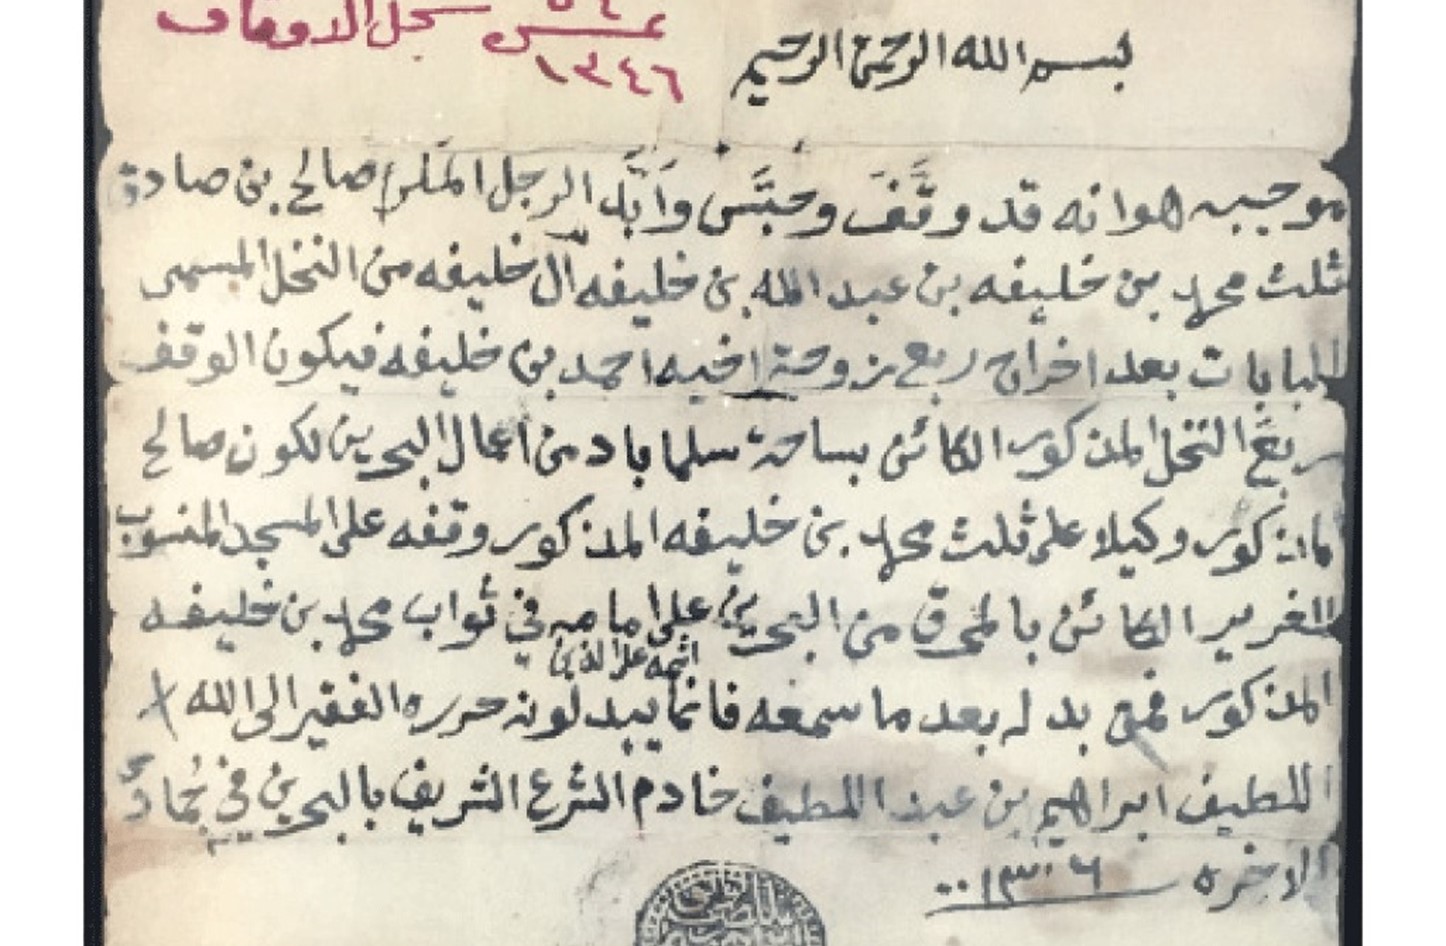 سجل الاوقاف
١٣٤٦
بسم الله الرحمن الرحيم
موجبه هو انه قد وقَّفَ وحبَّس وابَّد الرجل المكرم صالح بن صادق
ثلث محمد بن خليفه بن عبد الله بن خليفه آل خليفه من النخل المسمى
البابات بعد اخراج ربع زوجة اخيه احمد بن خليفه فيكون الوقف
ربع النخل المذكور الكائن بساحة سلماباد من اعمال البحرين لكون صالح
المذكور وكيلا على ثلث محمد بن خليفه المذكور وقفه على المسجد المنسوب
للغرير الكائن بالمحرق من البحرين على امامه في ثواب محمد بن خليفه
اثمه على الذين
المذكور فمن بدله بعد ما سمعه فانما يبدلونه حرره الفقير الى الله
اللطيف ابراهيم بن عبد اللطيف خادم الشرع الشريف بالبحرين في جُمادى
الاخره ١٣٠٦